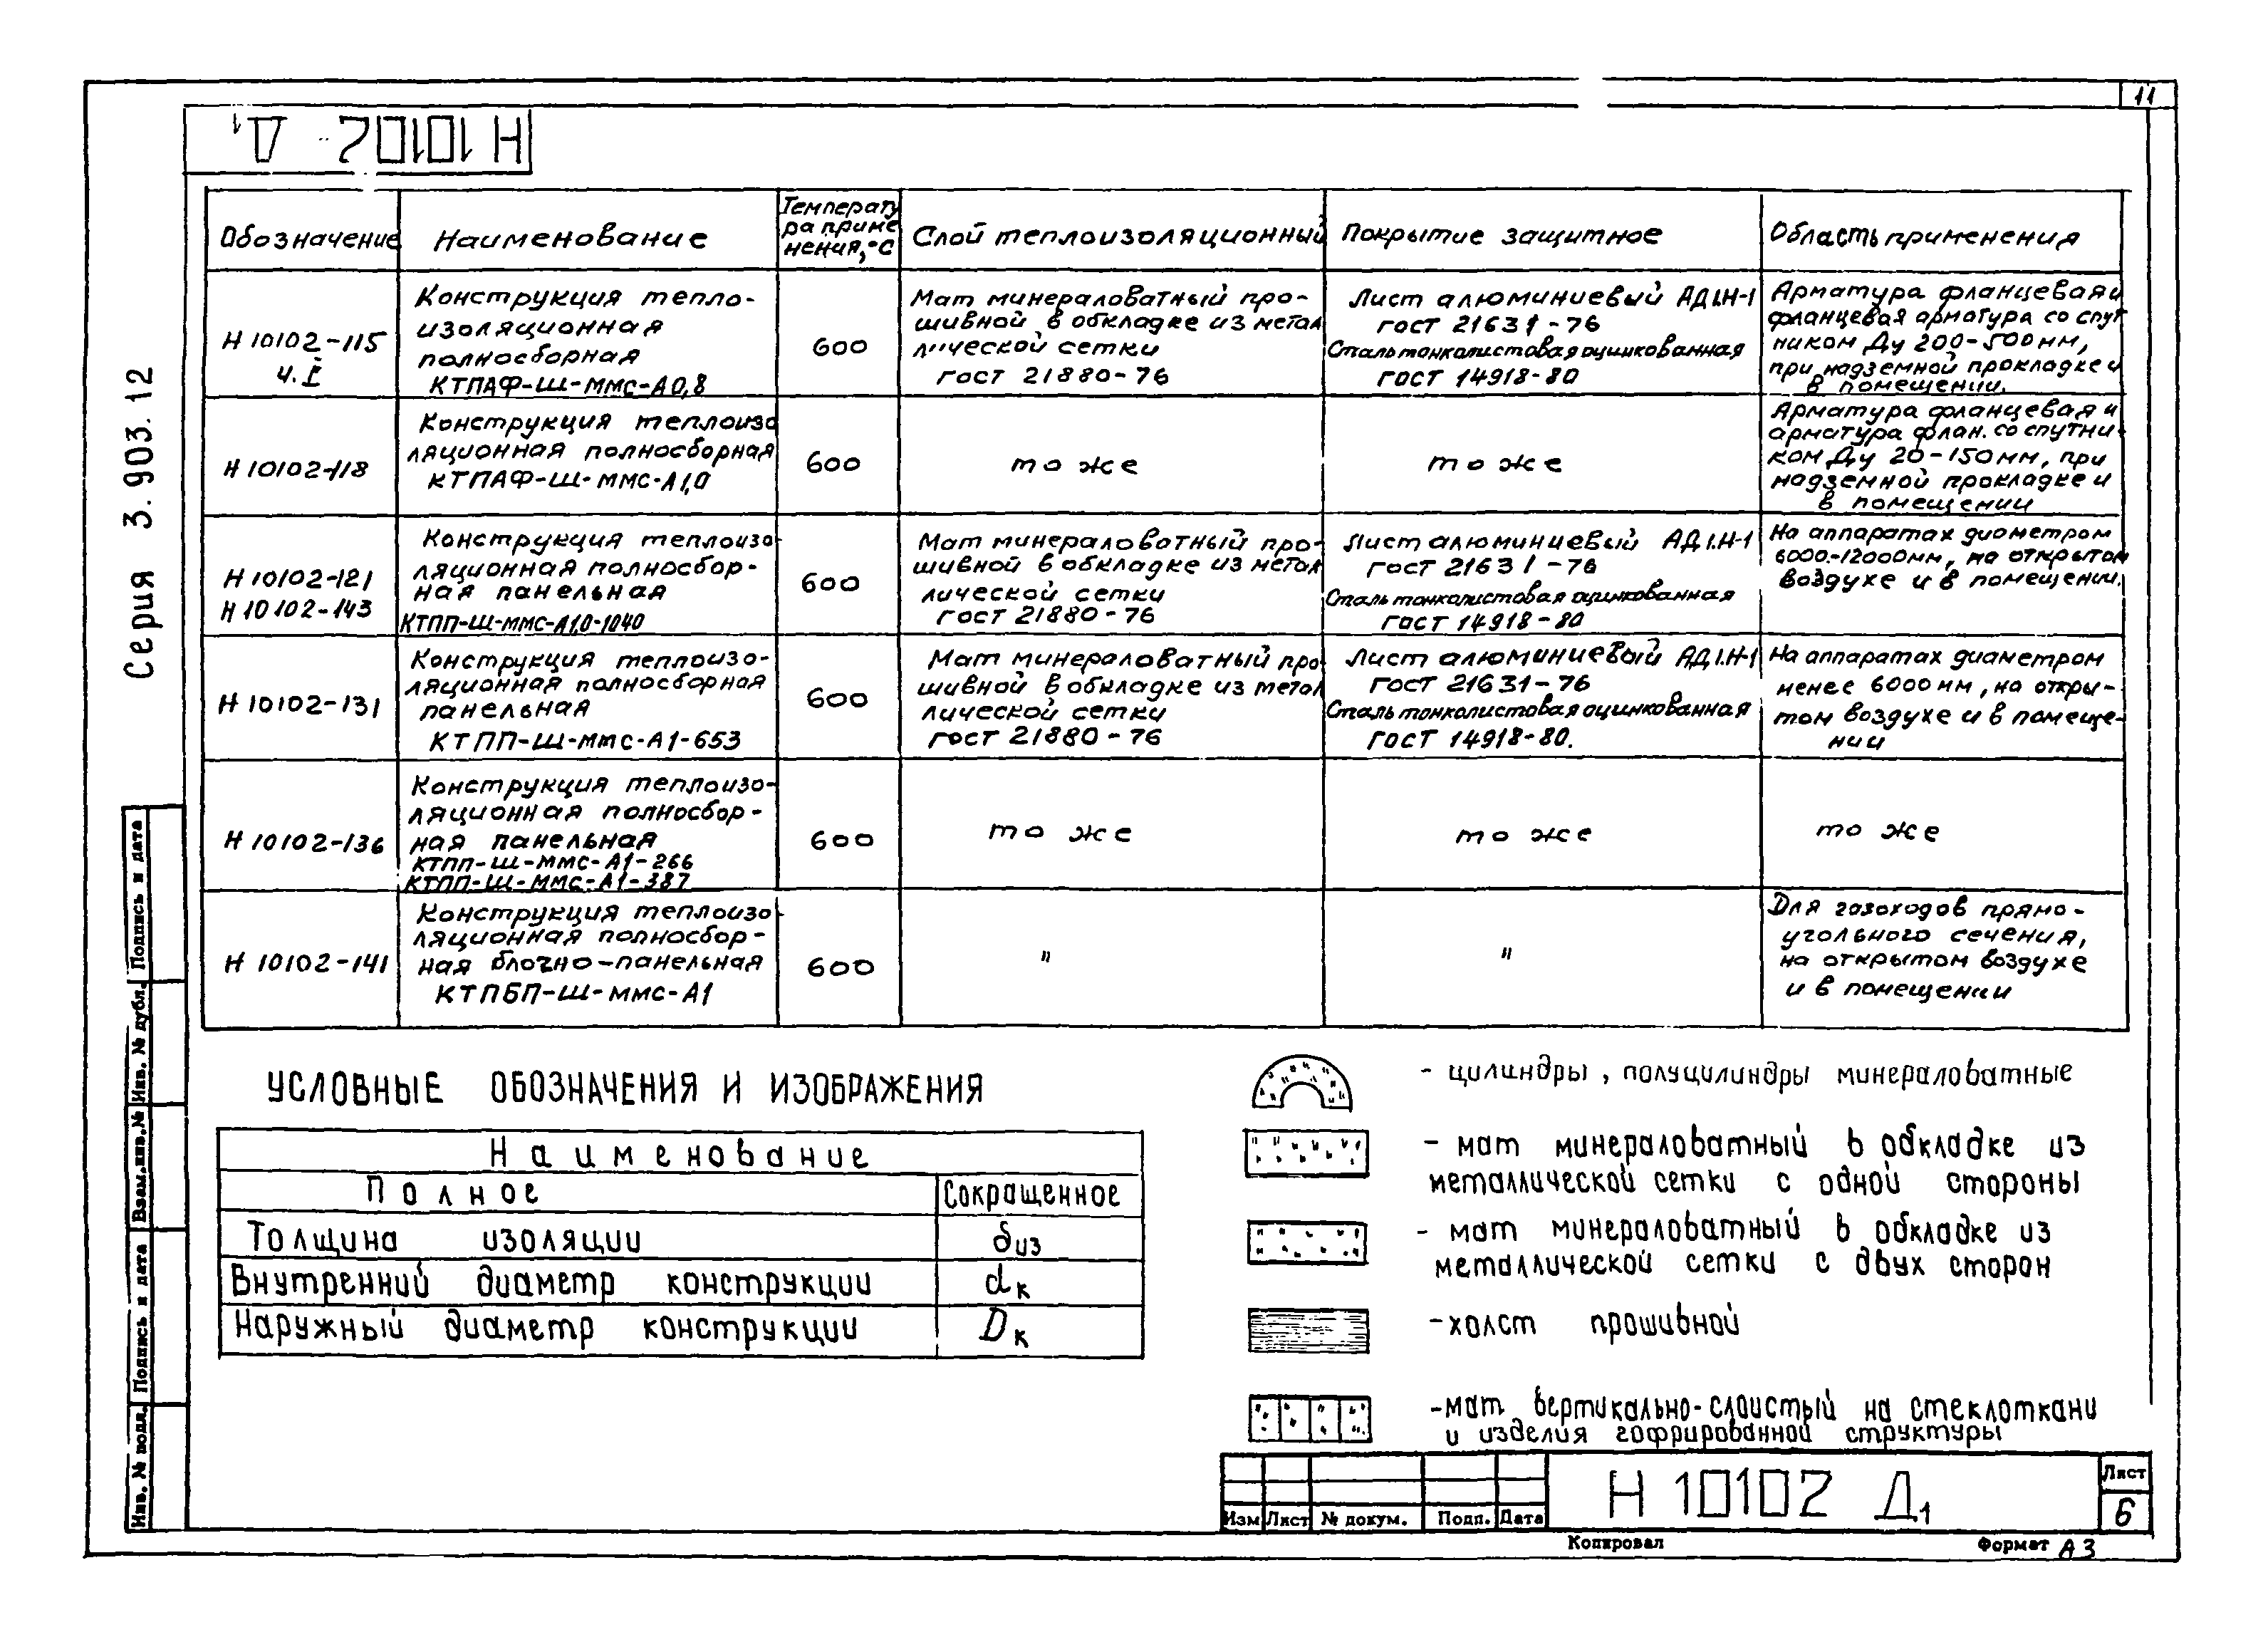 11
Н 10102 Д1
Серия 3.903.12
Обозначение
Наименование
Температу
ра приме
нения,°С
Слой теплоизоляционный
Покрытие защитное
Область применения
Н 10102-115
ч. I
Конструкция тепло-
изоляционная
полносборная
КТПАФ-Ш-ММС-А0,8
600
Мат минераловатный про-
шивной в обкладке из метал
лической сетки
ГОСТ 21880-76
Лист алюминиевый АД1.Н-1
ГОСТ 21631-76
Сталь тонколистовая оцинкованная
ГОСТ 14918-80
Арматура фланцевая и
фланцевая арматура со спут
ником Ду 200-500мм,
при надземной прокладке и
в помещении.
Н 10102-118
Конструкция теплоизо
ляционная полносборная
КТПАФ-Ш-ММС-А1,0
600
то же
то же
Арматура фланцевая и
арматура флан. со спутни-
ком Ду 20-150мм, при
надземной прокладке и
в помещении
Н 10102-121
Н 10102-143
Конструкция теплоизо-
ляционная полносбор-
ная панельная
КТПП-Ш-ММС-А1,0-1040
600
Мат минераловатный про-
шивной в обкладке из метал
лической сетки
ГОСТ 21880-76
Лист алюминиевый АД1.Н-1
ГОСТ 21631-76
Сталь тонколистовая оцинкованная
ГОСТ 14918-80
На аппаратах диаметром
6000-12000мм, на открытом
воздухе и в помещении.
Н 10102-131
Конструкция теплоизо-
ляционная полносборная
панельная
КТПП-Ш-ММС-А1-653
600
Мат минераловатный про-
шивной в обкладке из метал
лической сетки
ГОСТ 21880-76
Лист алюминиевый АД1.Н-1
ГОСТ 21631-76
Сталь тонколистовая оцинкованная
ГОСТ 14918-80.
На аппаратах диаметром
менее 6000мм, на откры-
том воздухе и в помеще-
нии
Н 10102-136
Конструкция теплоизо-
ляционная полносбор-
ная панельная
КТПП-Ш-ММС-А1-266
КТПП-Ш-ММС-А1-387
600
то же
то же
то же
Н 10102-141
Конструкция теплоизо-
ляционная полносбор-
ная блочно-панельная
КТПБП-Ш-ММС-А1
600
"
"
Для газоходов прямо-
угольного сечения,
на открытом воздухе
и в помещении
УСЛОВНЫЕ ОБОЗНАЧЕНИЯ И ИЗОБРАЖЕНИЯ
Наименование
Полное
Сокращенное
Толщина изоляции
δиз
Внутренний диаметр конструкции
dк
Наружный диаметр конструкции
Dк
- цилиндры, полуцилиндры минераловатные
- мат минераловатный в обкладке из
металлической сетки с одной стороны
- мат минераловатный в обкладке из
металлической сетки с двух сторон
-холст прошивной
-мат вертикально-слоистый на стеклоткани
и изделия гофрированной структуры
Изм Лист № докум. Подп. Дата
Н 10102 Д1
Лист
6
Копировал
Формат А3
Инв. № подл. Подпись и дата Взам.инв.№ Инв. № дубл. Подпись и дата